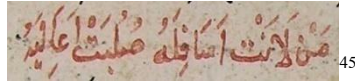 مَنْ لَانَتْ اَسَافِلُهُ صُلبَتْ اَعَالِيْهُ 45